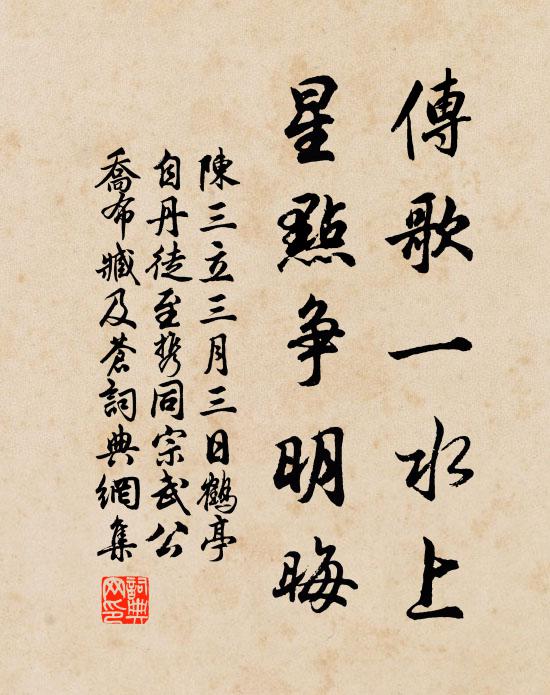 傳歌一水上
星點爭明晦
陳三立三月三日鶴亭
自丹徒至攜同宗武公
喬布臧及蒼詞典網集
詞典網印